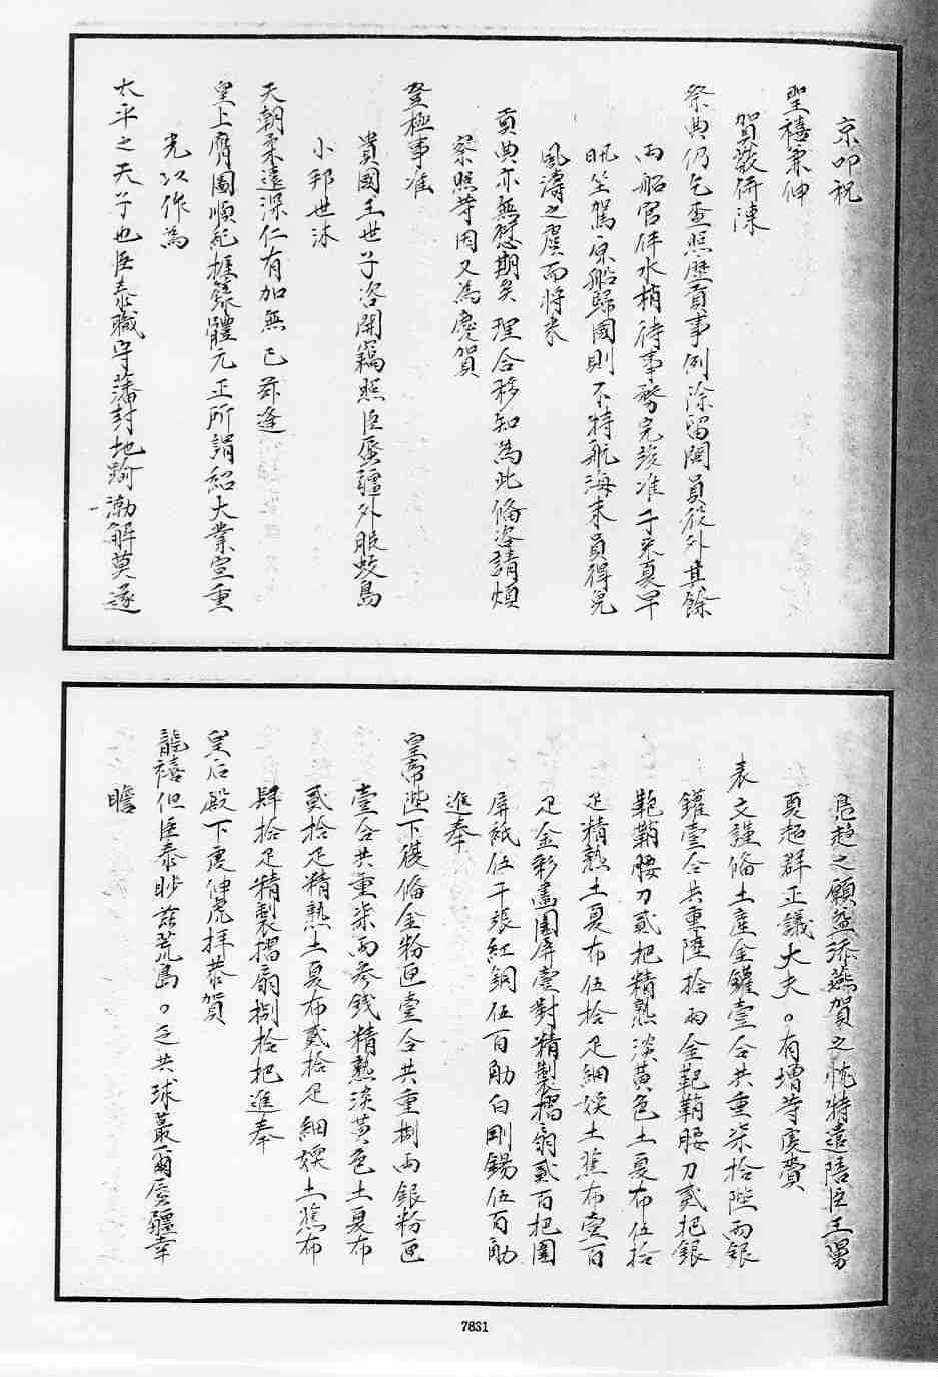 京叩祝
聖禧兼伸
賀悃併陳
祭典仍乞查照歷貢事例除留閩員役外其餘
両船官伴水梢待事務完竣准于来夏早
汛坐駕原船歸國則不特航海末員得免
風濤之虞而将来
貢典亦無愆期矣理合移知為此備咨請煩
察照等因又為慶賀
登極事准
貴國王世子咨開竊照臣蜃疆外服蛟島
小邦世沐
天朝柔遠深仁有加無已茲逢
皇上膺圖順紀握籙體元正所謂紹大業宣重
光以作為
太平之天子也臣泰職守藩封地踰渤澥莫遂
鳧趨之願益添燕賀之忱特遣陪臣王舅
夏超群正議大夫。有増等虔賫
表文謹備土産金鑵壹合共重柒拾陸両銀
鑵壹合共重陸拾両金靶鞘腰刀貳把銀
靶鞘腰刀貳把精熟淡黄色土夏布伍拾
疋精熟土夏布伍拾疋細嫩土蕉布壹百
疋金彩畫圍屏壹對精製摺扇貳百把圍
屏紙伍千張紅銅伍百觔白剛錫伍百觔
進奉
皇帝陛下復備金粉匣壹合共重捌両銀粉匣
壹合共重柒両参錢精熟淡黄色土夏布
貳拾疋精熟土夏布貳拾疋細嫩土蕉布
肆拾疋精製摺扇捌拾把進奉
皇后殿下虔伸虎拜恭賀
龍禧但臣泰眇茲荒島。乏共球蕞爾唇疆幸
瞻
7831